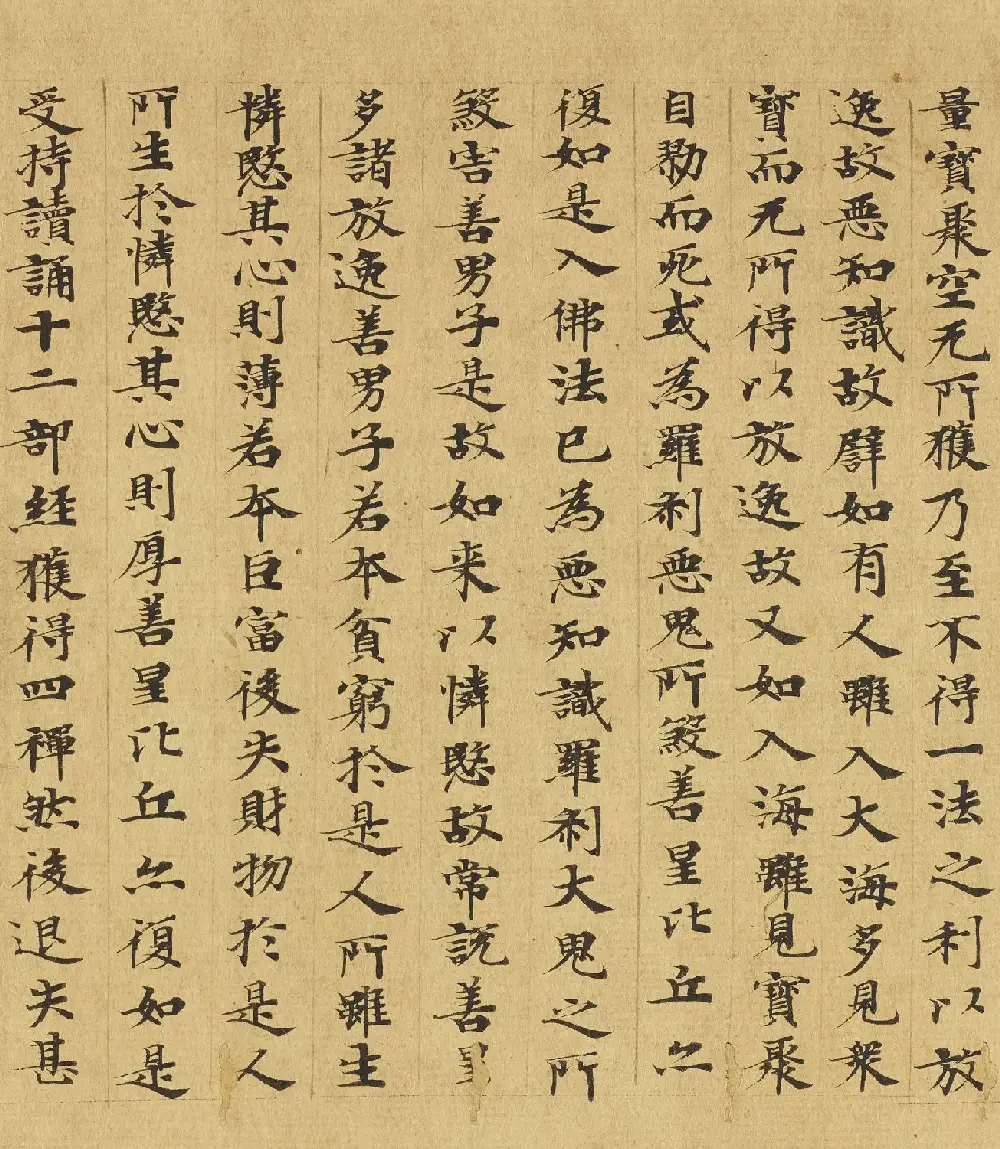 量寶聚空无所獲乃至不得一法之利以放
逸故惡知識故譬如有人雖入大海多見衆
寶而无所得以放逸故又如入海雖見寶聚
自勠而死或為羅刹惡鬼所煞善星比丘亦
復如是入佛法已為惡知識羅刹大鬼之所
煞害善男子是故如来以憐愍故常説善星
多諸放逸善男子若本貧窮於是人所雖生
憐愍其心則薄若本巨富後失財物於是人
所生於憐愍其心則厚善星比丘亦復如是
受持讀誦十二部経獲得四禪然後退失甚